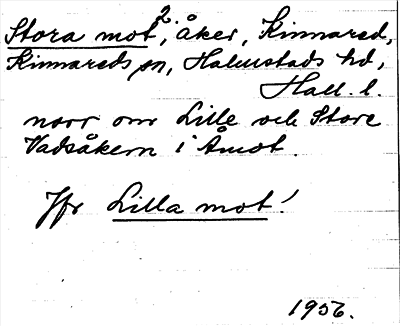 Stora mot², åker, Kinnared,
Kinnareds sn, Halmstads hd,
Hall. l.
norr om Lille och Store
Vadsåkern i Åmot.
Jfr Lilla mot!
1956.